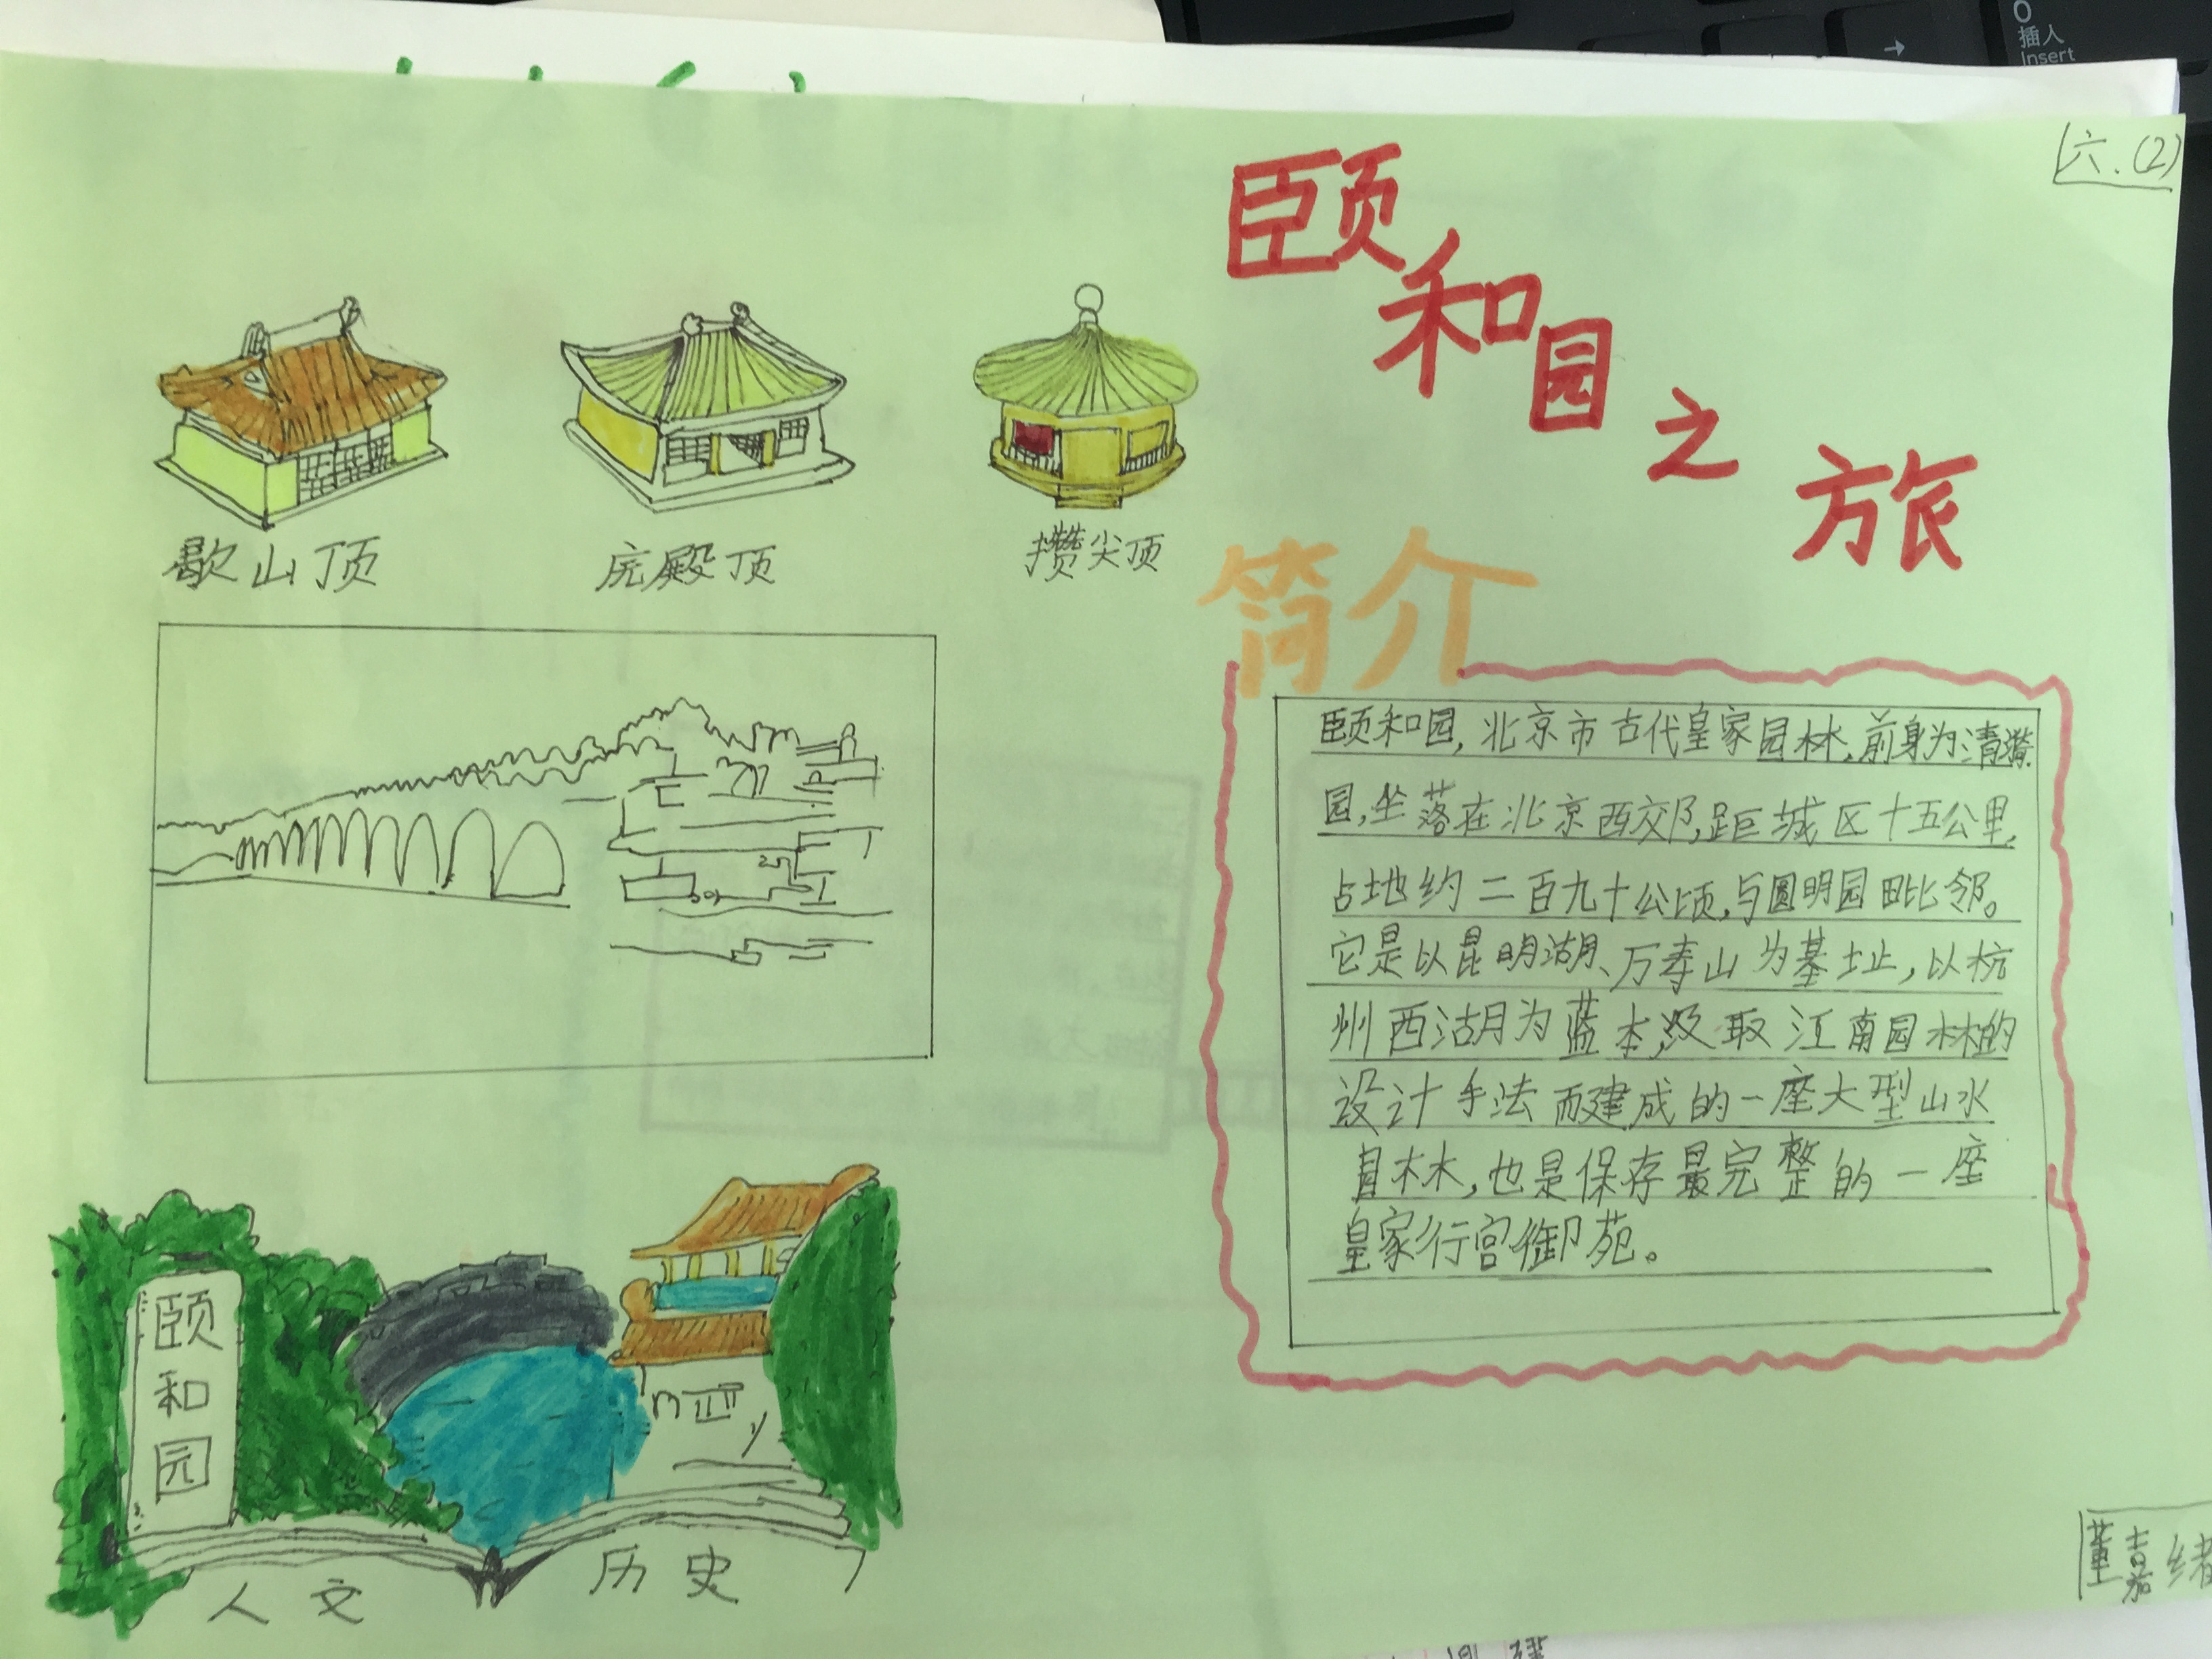 O
插入
Insert
→
六.(2)
颐和园之旅
歇山顶
庑殿顶
攒尖顶
简介
颐和园,北京市古代皇家园林,前身为清漪
园,坐落在北京西郊,距城区十五公里,
占地约二百九十公顷,与圆明园毗邻。
它是以昆明湖、万寿山为基址,以杭
州西湖为蓝本,汲取江南园林的
设计手法而建成的一座大型山水
林,也是保存最完整的一座
皇家行宫御苑。
颐
和
园
人文
历史
董嘉绪